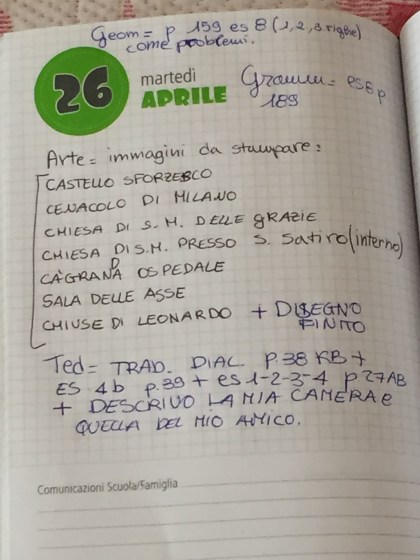 Geom = p 159 es 8 (1, 2, 3 righe)
come problemi.
26
martedì
APRILE
Gramm = es 6 p
189
Arte = immagini da stampare :
CASTELLO SFORZESCO
CENACOLO DI MILANO
CHIESA DI S. M. DELLE GRAZIE
CHIESA DI S.M. PRESSO S. Satiro (interno)
CÀ GRANDA OSPEDALE
SALA DELLE ASSE
CHIUSE DI LEONARDO + DISEGNO
FINITO
Ted = TRAD. DIAL. P.38 KB +
ES 4b p.39 + es 1-2-3-4 p 27 AB
+ DESCRIVO LA MIA CAMERA e
QUELLA DEL MIO AMICO.
Comunicazioni Scuola/Famiglia